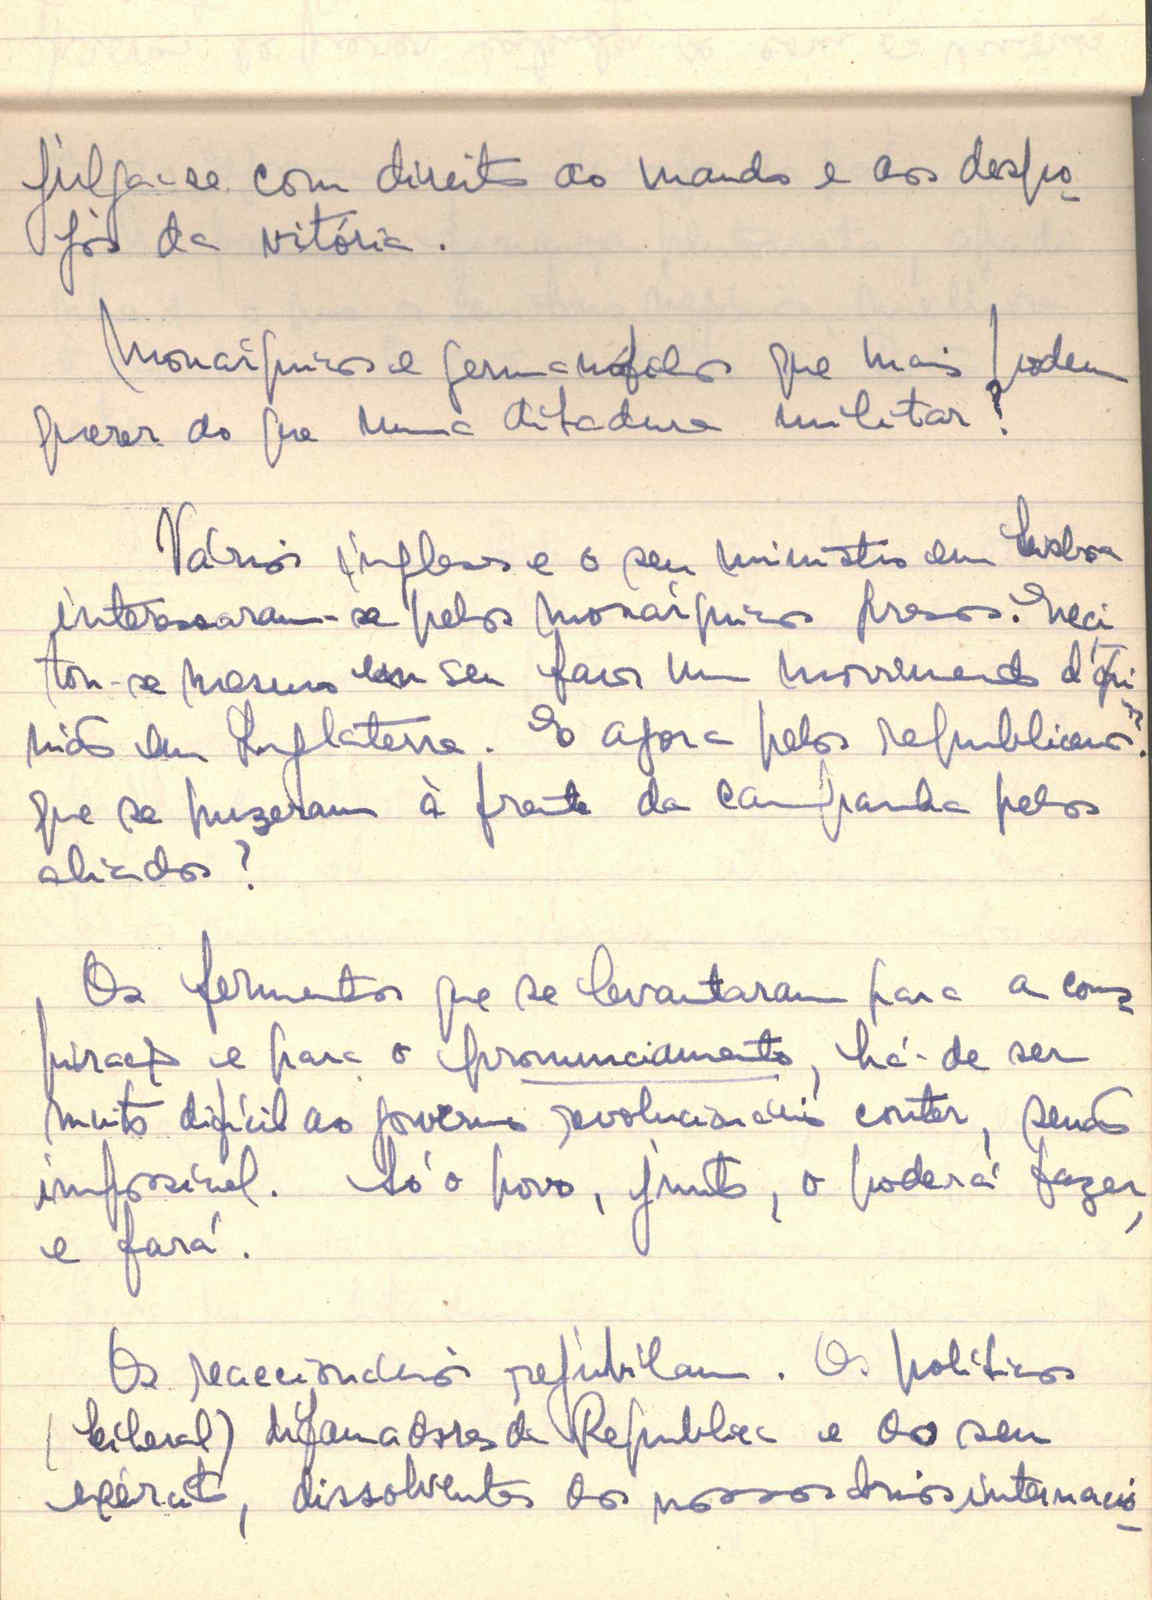 julga-se com direito ao mando e aos despo-
jos da vitória.
Monárquicos e germanófilos que mais podem
querer do que numa ditadura militar?
Vários ingleses e o seu ministro em Lisboa
interessaram-se pelos monárquicos presos. Neci
tou-se mesmo em seu favor um movimento d'opi-
nião em Inglaterra. E agora pelos republicanos?
que se puzeram à frente da campanha pelos
aliados?
Os fermentos que se levantaram para a cons-
piração e para o pronunciamento, há-de ser
muito difícil ao governo revolucionário conter, senão
impossível. Só o povo, junto, o poderá fazer,
e fará.
Os reaccionários rejubilam. Os políticos
(liberal) difamadores da Republica e do seu
exército, dissolventes dos nossos brios internacio-